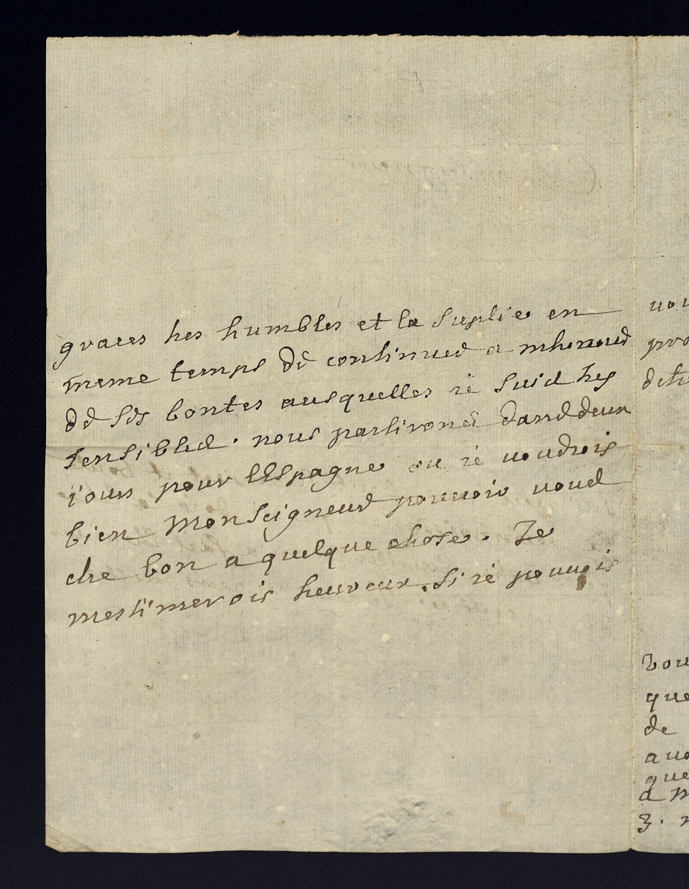 graces tres humbles et la suplie en
meme temps de continuer a mhonorer
de ses bontes ausquelles ie suis tres
sensibles. nous partirons dans deux
iours pour lEspagne ou ie voudrois
bien Monseigneur pouvoir vous
etre bon a quelque chose. Je
mestimerois heureux. si ie pouvois
vou
pro
de
que
a m
3.